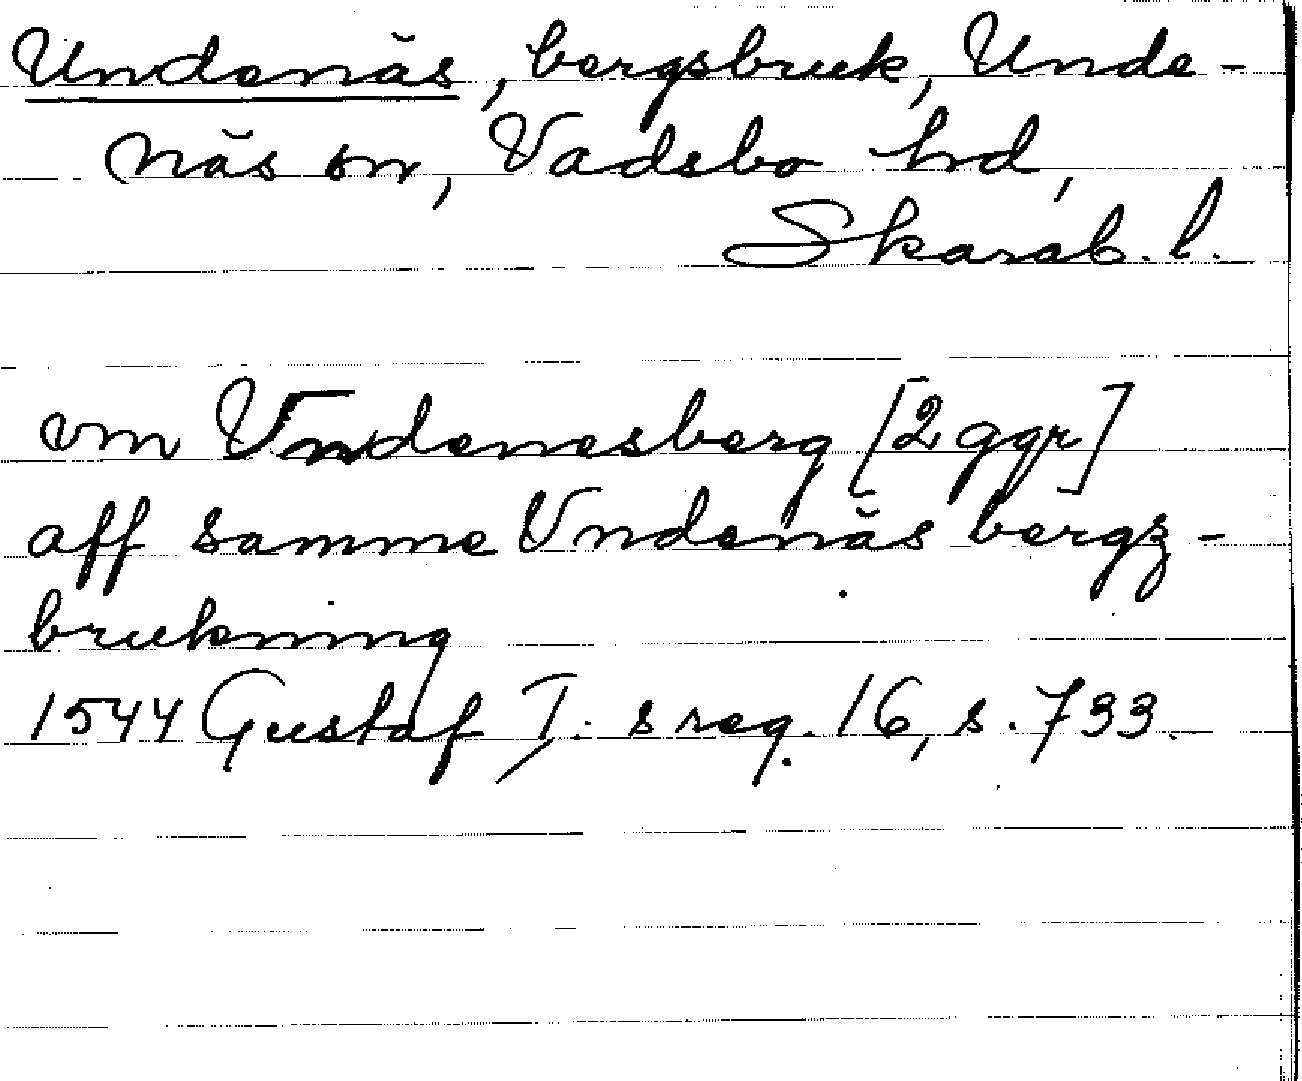 Undenäs, bergsbruk, Unde-
näs sn, Vadsbo hd,
Skarab. l.
om Vndenesberg [2 ggr]
aff samme Vndenäs bergz-
brukning
1544 Gustaf I:s reg. 16, s. 733.